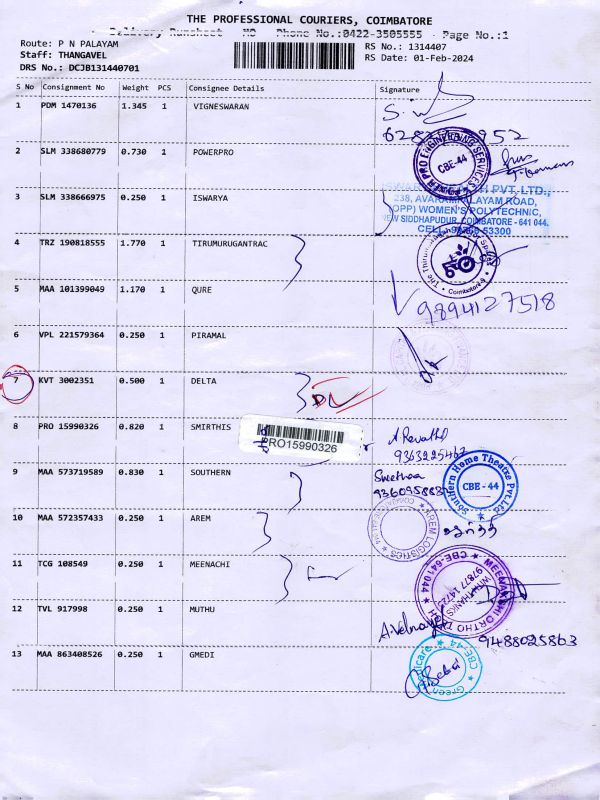 THE PROFESSIONAL COURIERS, COIMBATORE
Delivery Runsheet - HO Phone No.:0422-3505555 - Page No.:1
Route: P N PALAYAM
RS No.: 1314407
Staff: THANGAVEL
RS Date: 01-Feb-2024
DRS No.: DCJB131440701
S No Consignment No Weight PCS Consignee Details Signature
1 PDM 1470136 1.345 1 VIGNESWARAN
2 SLM 338680779 0.730 1 POWERPRO
CBE-44
3 SLM 338666975 0.250 1 ISWARYA
PVT. LTD.,
238, AVARAMPALAYAM ROAD,
(OPP) WOMEN'S POLYTECHNIC,
NEW SIDDHAPUDUR, COIMBATORE - 641 044.
4 TRZ 190818555 1.770 1 TIRUMURUGANTRAC
Coimbatore
5 MAA 101399049 1.170 1 QURE
9894127518
6 VPL 221579364 0.250 1 PIRAMAL
7 KVT 3002351 0.500 1 DELTA
DL
8 PRO 15990326 0.820 1 SMIRTHIS
PRO15990326
A Revathi
9363225463
9 MAA 573719589 0.830 1 SOUTHERN
Swetha
Southern Home Theatre Pvt.Ltd
CBE - 44
10 MAA 572357433 0.250 1 AREM
AREM LOGISTICS
11 TCG 108549 0.250 1 MEENACHI
MEENAKSHI ORTHO
CBE-641 044
WITH THANKS
12 TVL 917998 0.250 1 MUTHU
9488025863
13 MAA 863408526 0.250 1 GMEDI
CBE-44